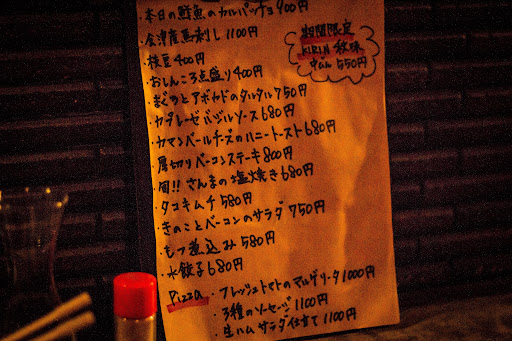 ・本日の鮮魚のカルパッチョ900円
・会津産馬刺し 1100円
・枝豆 400円
・おしんこ3点盛り 400円
・まぐろとアボカドのタルタル 750円
・カプレーゼバジルソース 680円
・カマンベールチーズのハニートースト 680円
・厚切りベーコンステーキ 800円
・旬!! さんまの塩焼き 680円
・タコキムチ 580円
・きのことベーコンのサラダ 750円
・もつ煮込み 580円
・水餃子 680円
Pizza ・フレッシュトマトのマルゲリータ 1000円
・3種のソーセージ 1100円
・生ハムサラダ仕立て 1100円
期間限定
KIRIN 秋味
中びん 550円